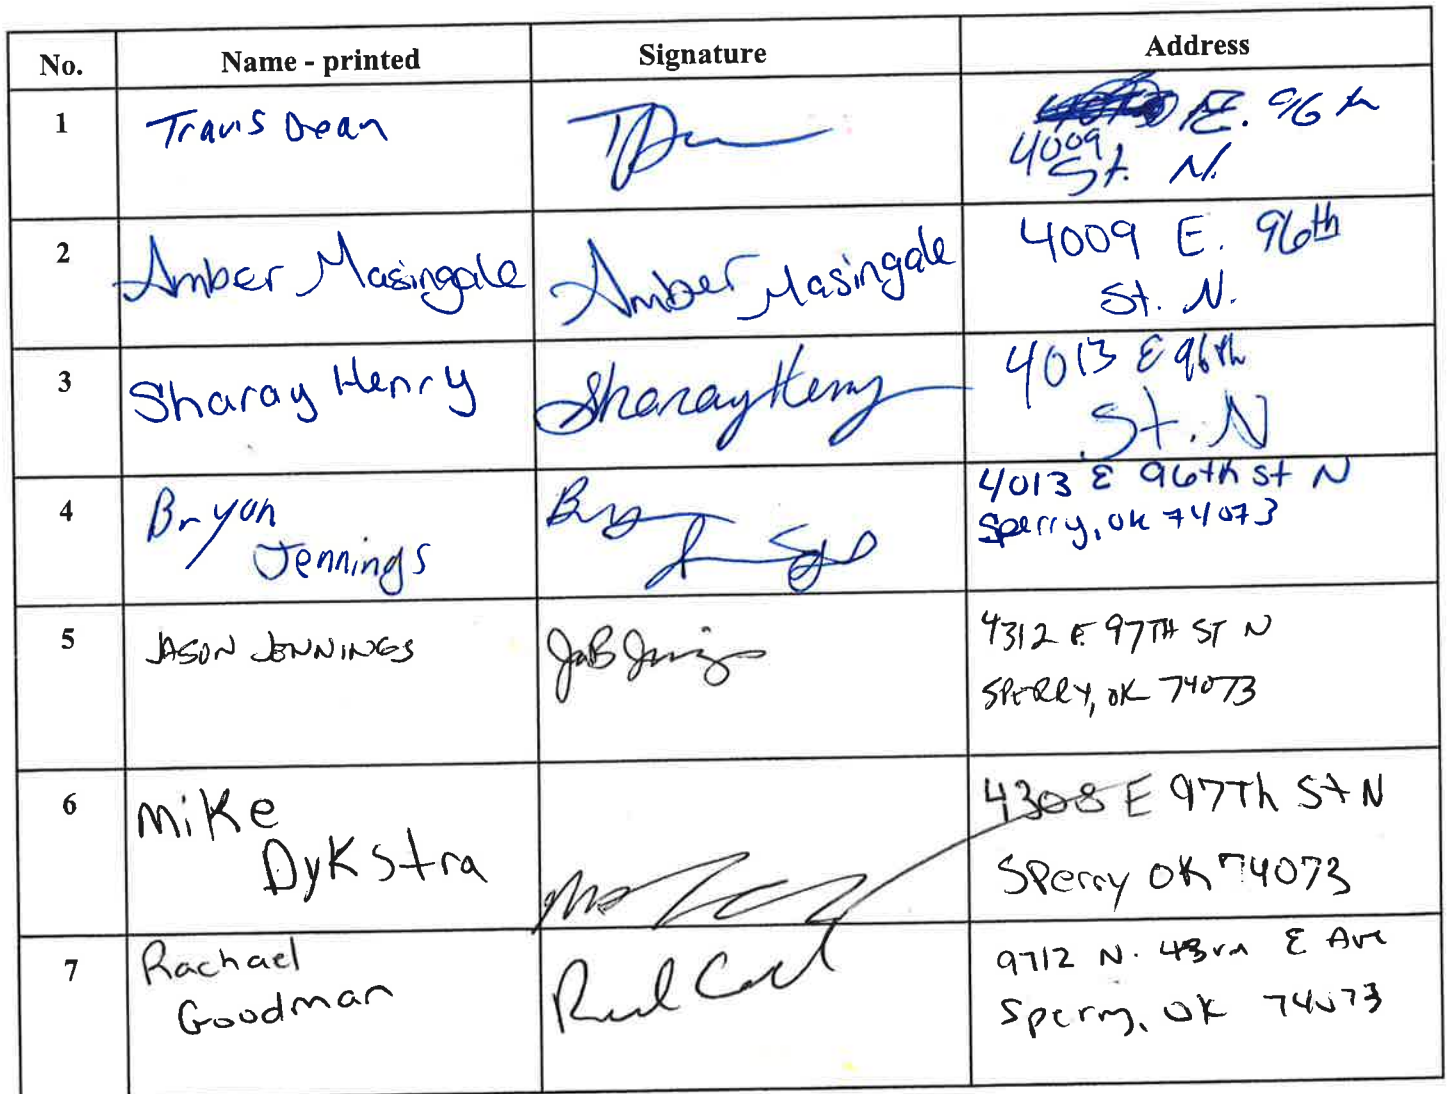 No. Name - printed Signature Address
1 Travis Dean TDean E. 96th
4009
St. N.
2 Amber Masingale Amber Masingale 4009 E. 96th
St. N.
3 Sharay Henry Sharay Henry 4013 E 96th
St. N
4 Bryon
Jennings
4013 E 96th St N
Sperry, OK 74073
5 JASON JENNINGS 4312 E 97TH ST N
SPERRY, OK 74073
6 Mike
Dykstra
4308 E 97Th St N
Sperry OK 74073
7 Rachael
Goodman
9712 N. 43rd E Ave
Sperry, OK 74073